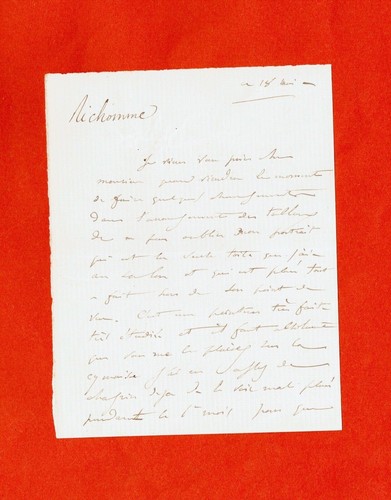 ce 18 mai
Richomme
Je vous en prie cher
monsieur quand viendra le moment
de faire quelques changements
dans l'arrangement des tableaux
de ne pas oublier mon portrait
qui est la seule toile que j'aie
au Salon et qui est placé tout
à fait hors de son point de
vue. C'est une peinture très faite
très étudiée et il faut
que vous me la placiez sur la
cymaise j'ai
chagrin de la voir mal placé
pendant le 1er mois pour que